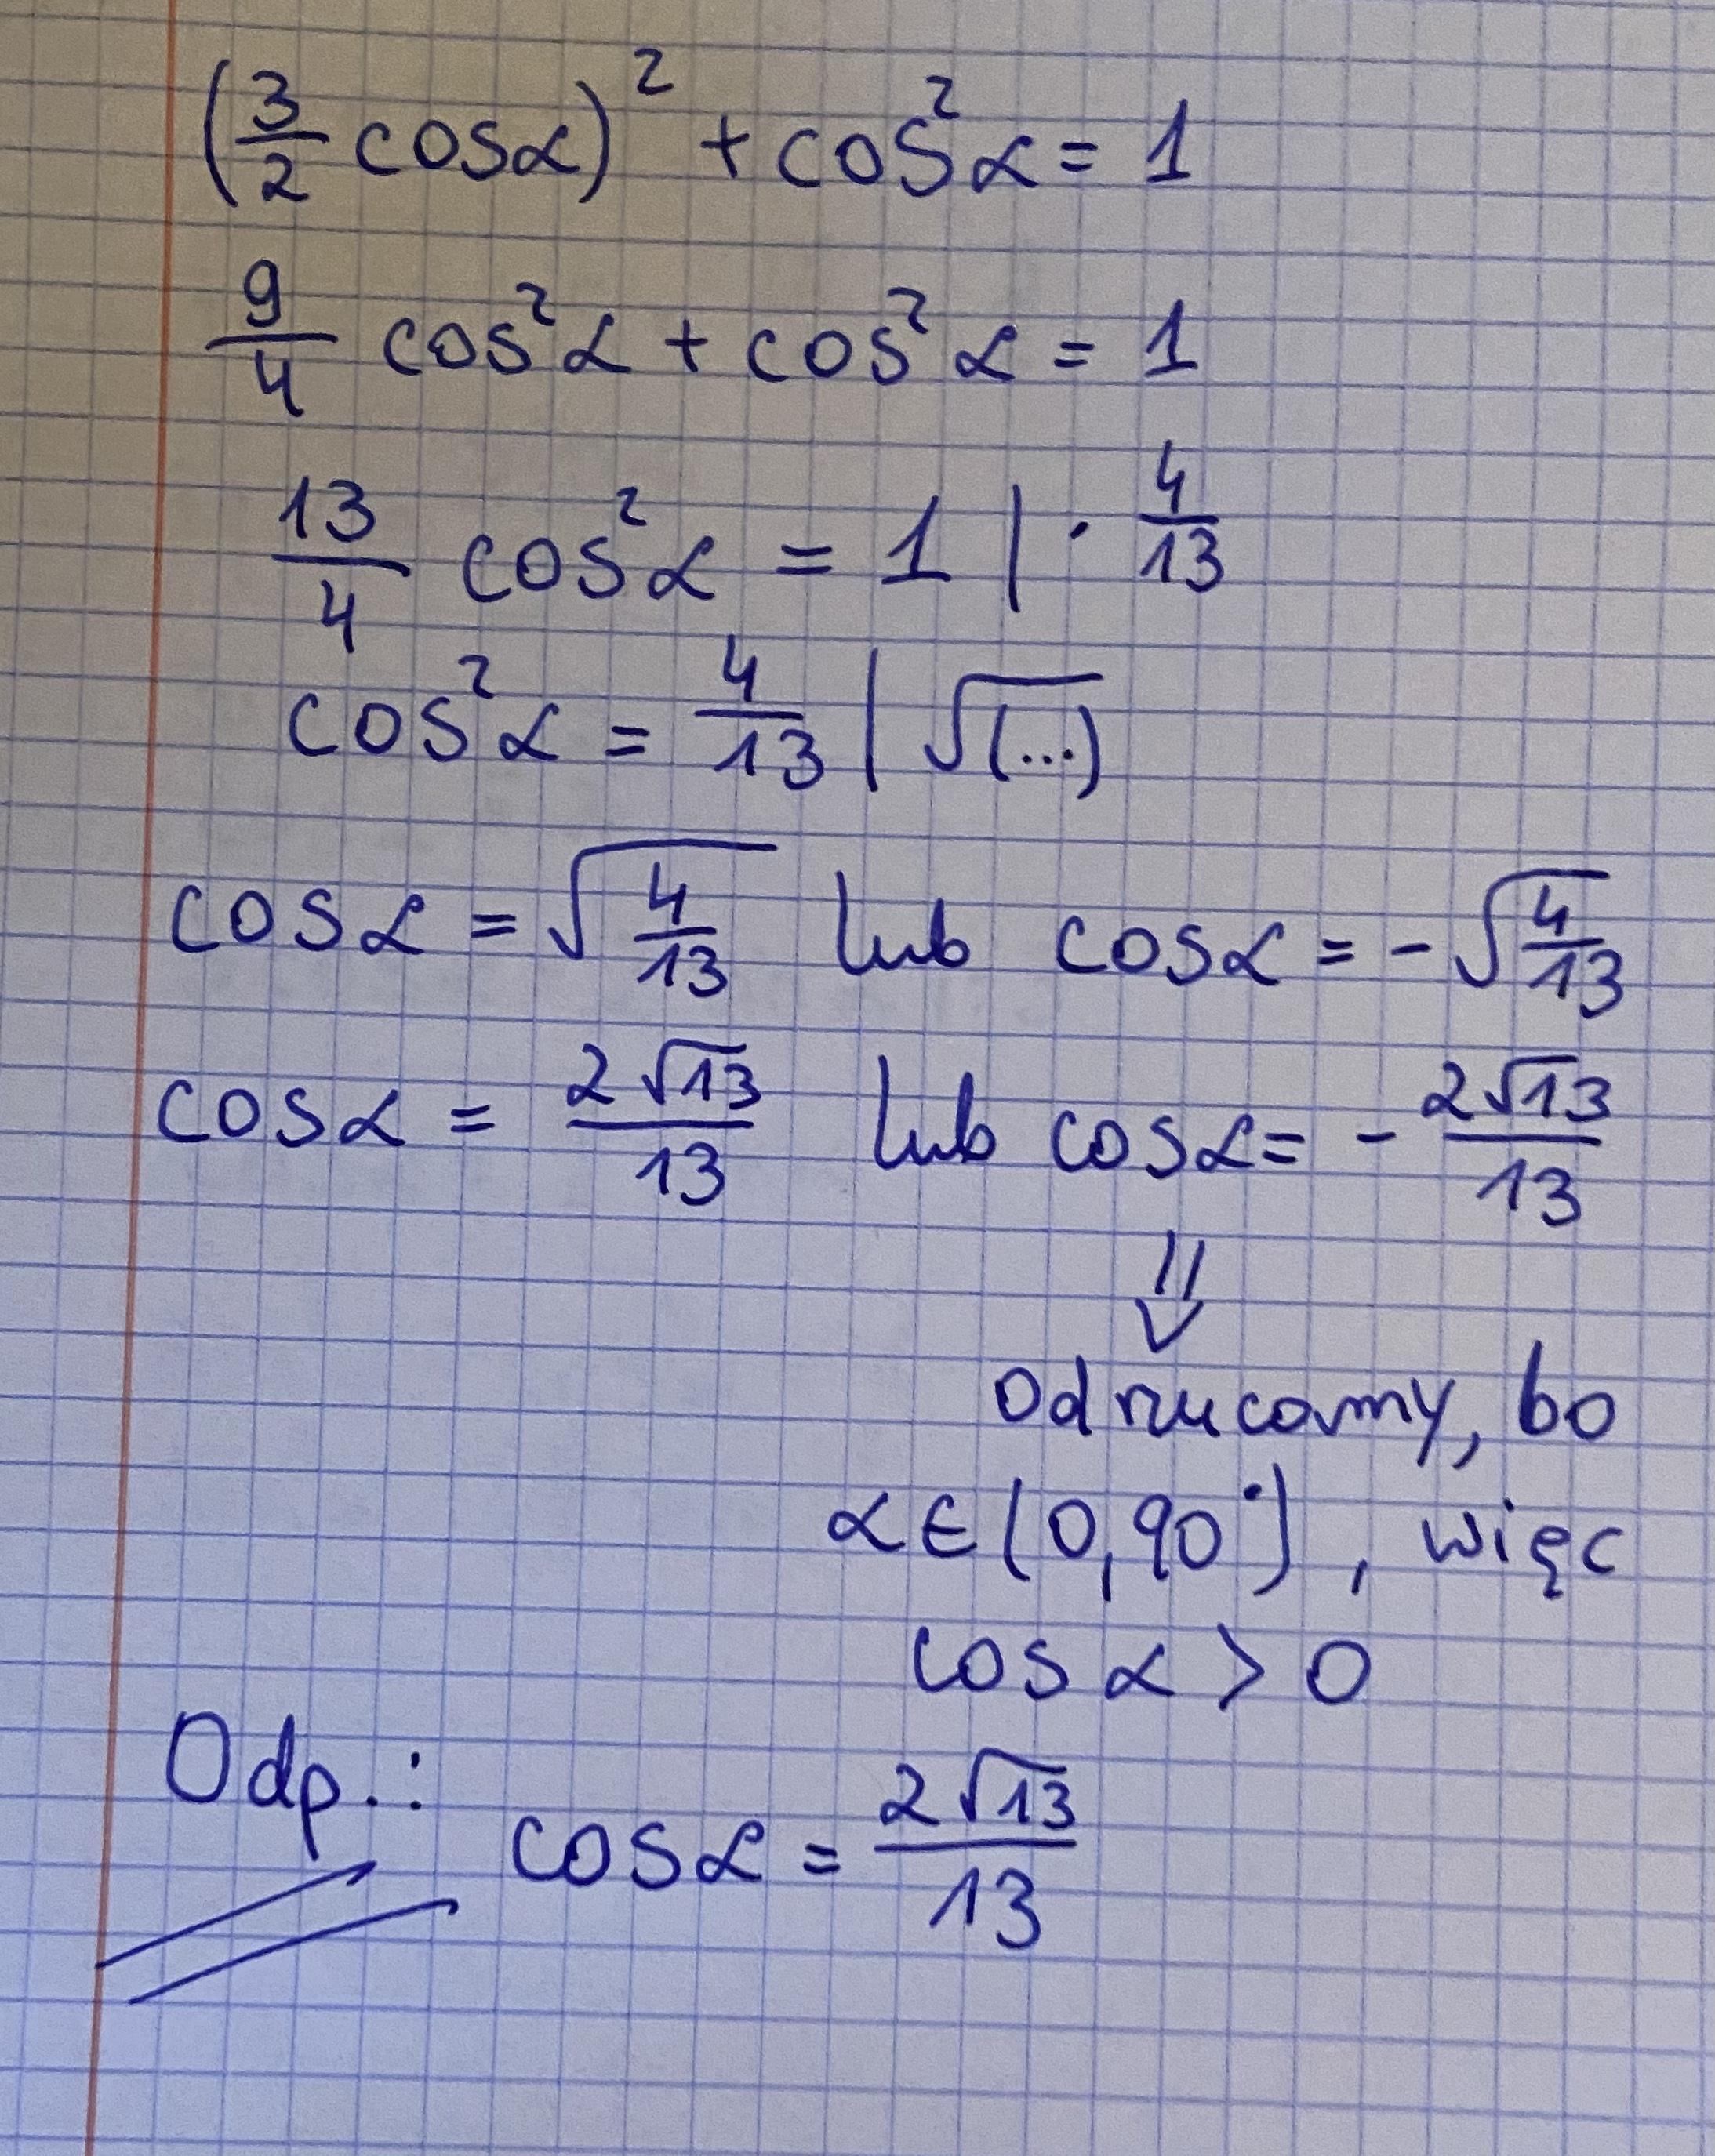 (3/2 cosα)² + cos²α = 1
9/4 cos²α + cos²α = 1
13/4 cos²α = 1 | · 4/13
cos²α = 4/13 | √(...)
cosα = √(4/13) lub cosα = -√(4/13)
cosα = 2√13/13 lub cosα = - 2√13/13
⇓
odrzucamy, bo
α∈(0,90°), więc
cos α > 0
Odp.: cosα = 2√13/13